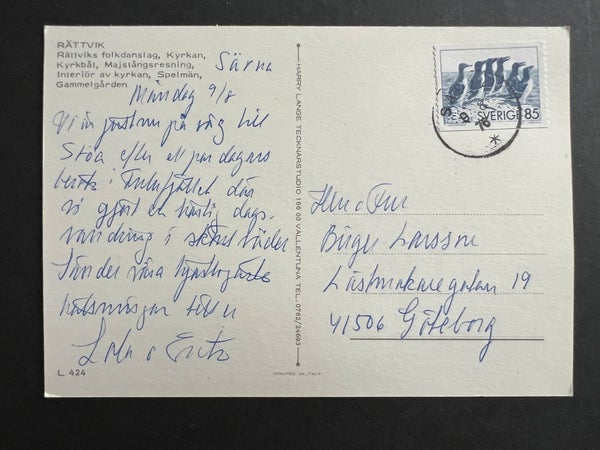 RÄTTVIK
Rättviks folkdanslag, Kyrkan,
Kyrkbåt, Majstångsresning,
Interiör av kyrkan, Spelmän,
Gammelgården
Särna
Måndag 9/8
Vi är just nu på väg till
Stöa efter ett par dagars
besök i Fulufjället där
vi gjort en härlig dags-
vandring i skönt väder
Sänder våra hjärtligaste
hälsningar till er
L 424
HARRY LANGE TECKNARSTUDIO 186 00 VALLENTUNA TEL. 0762/24693
PRINTED IN ITALY
SVERIGE 85
9
8
76
Herr o Fru
Birger Larsson
Lästmakaregatan 19
41506 Göteborg